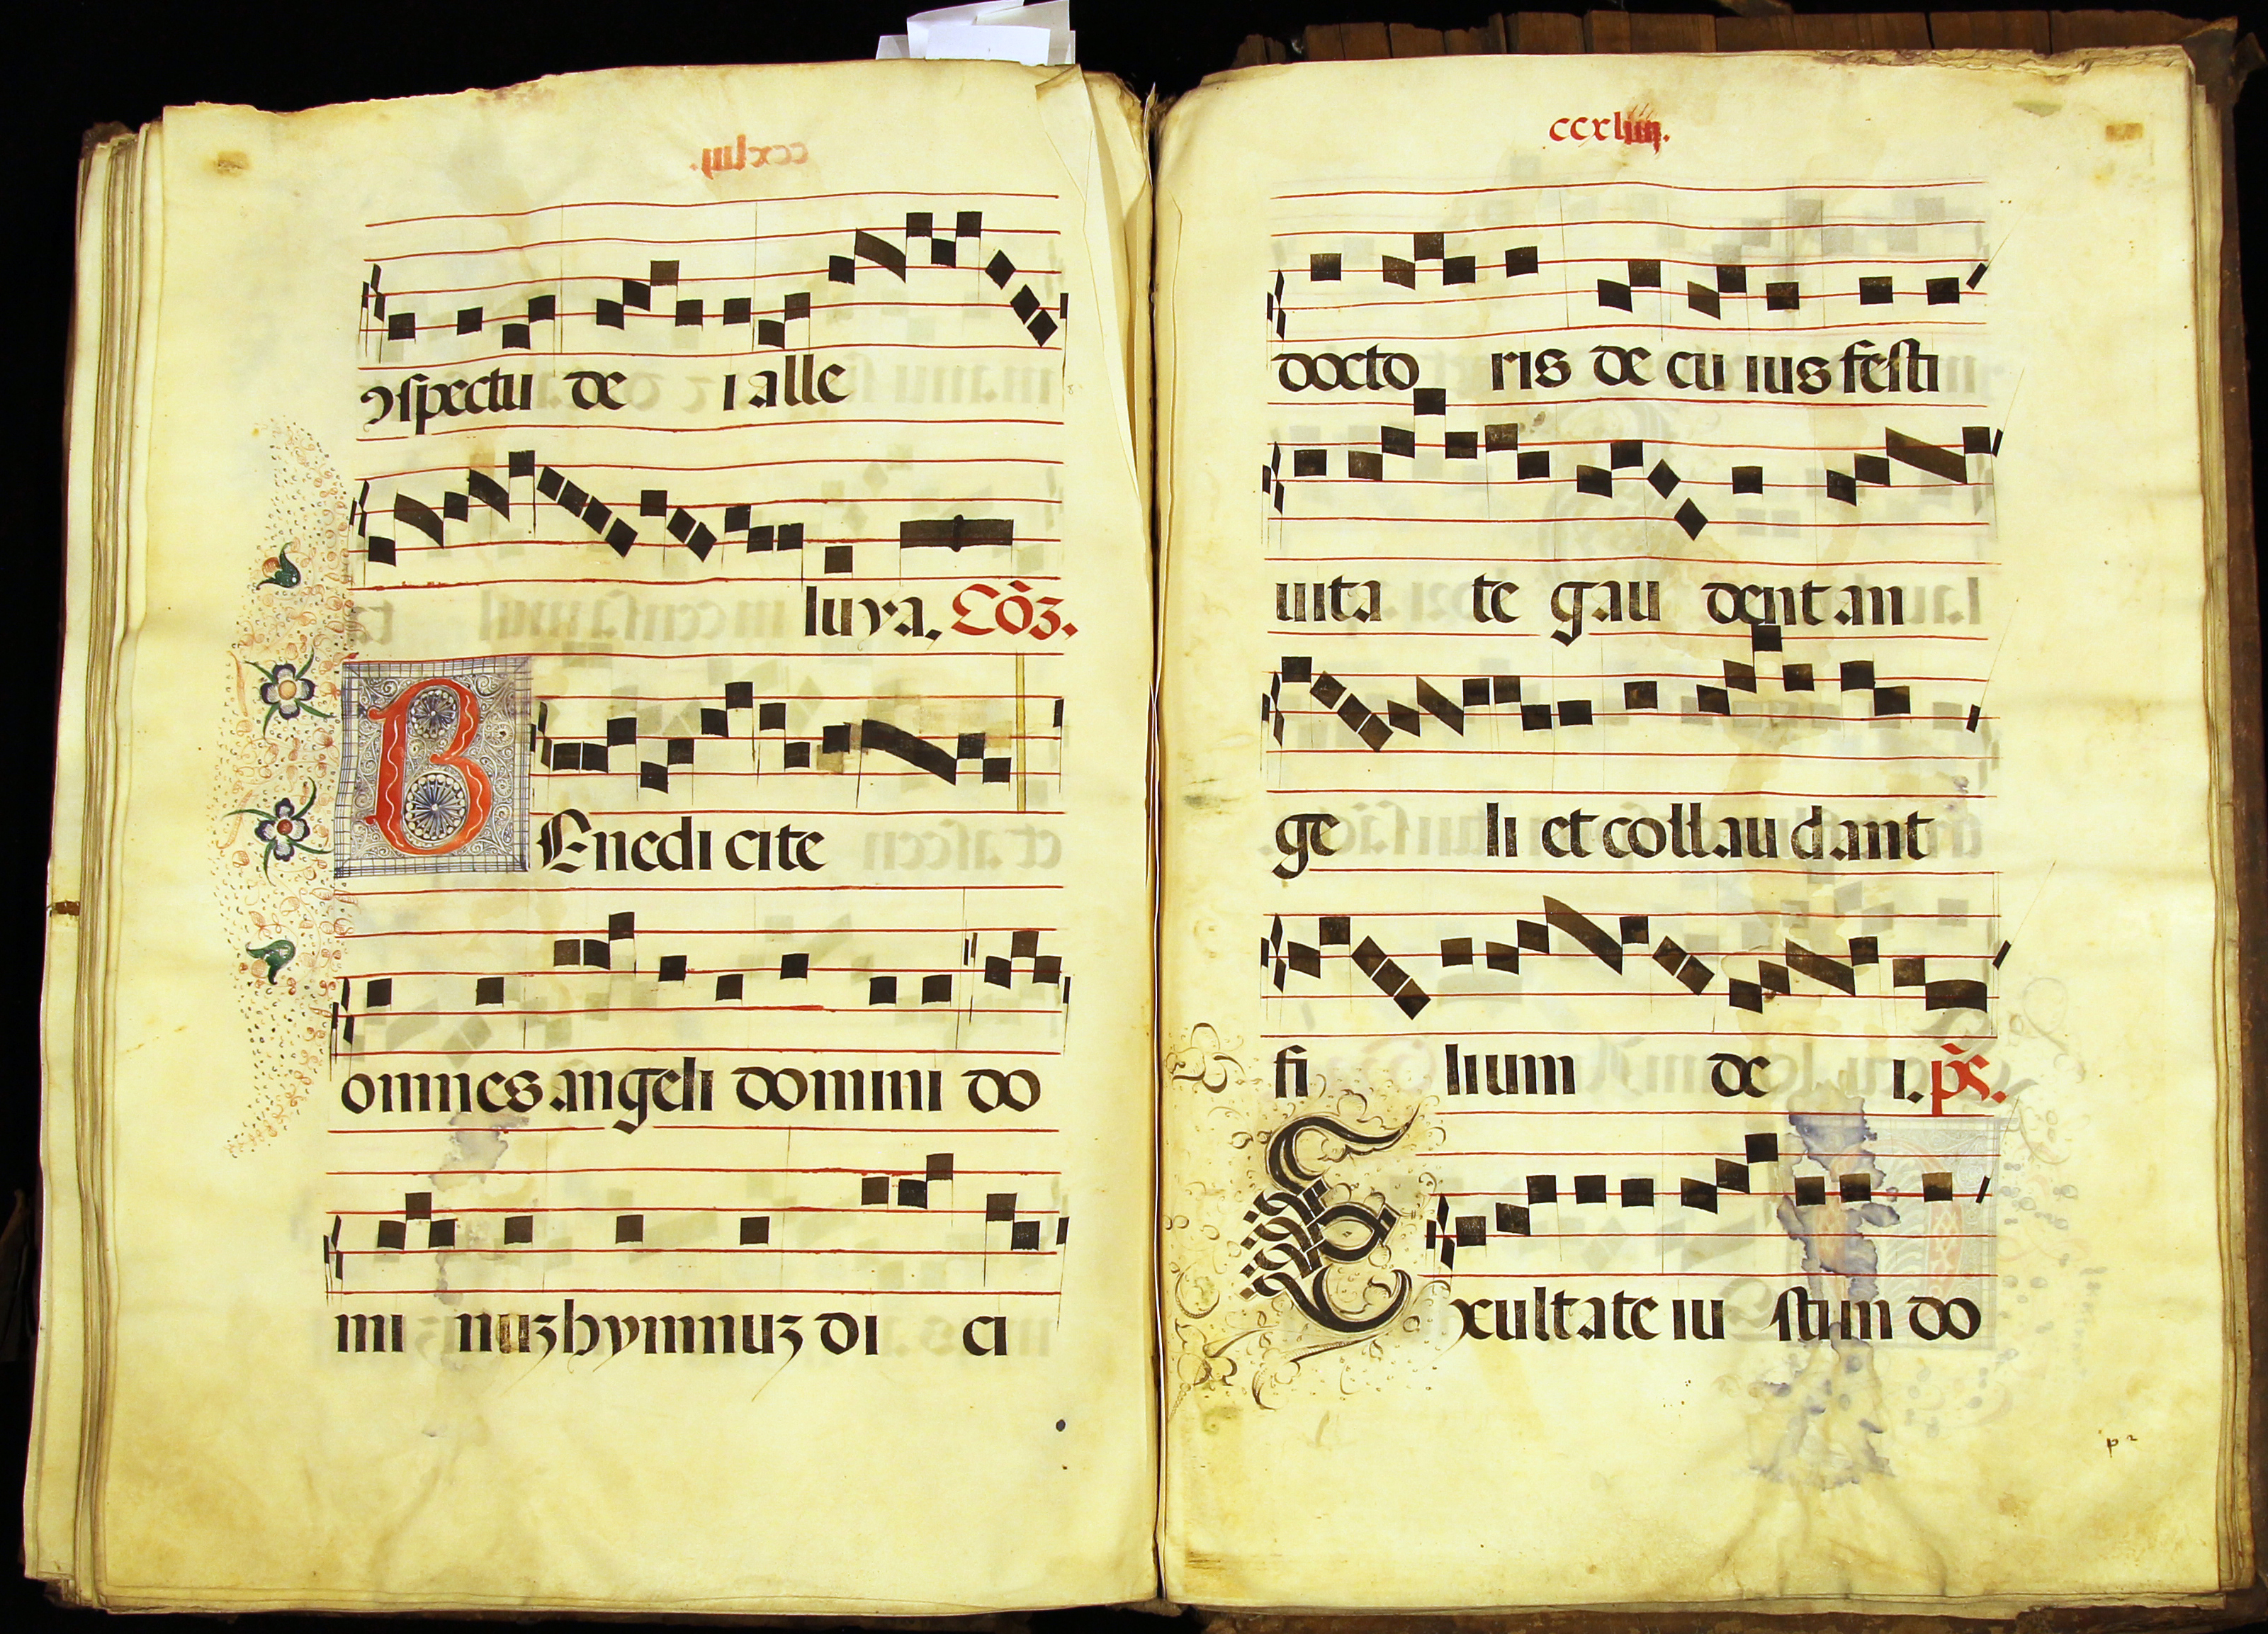 ꝯspectu de i alle
luya. Cōꝫ.
BEnedicite
omnes angeli domini do
mi nuꝫ hymnuꝫ di ci
ccxliiii.
docto ris de cu ius festi
uita te gau dent an
ge li et collaudant
fi lium de i. p̄s.
Exultate iu sti in do
p 2